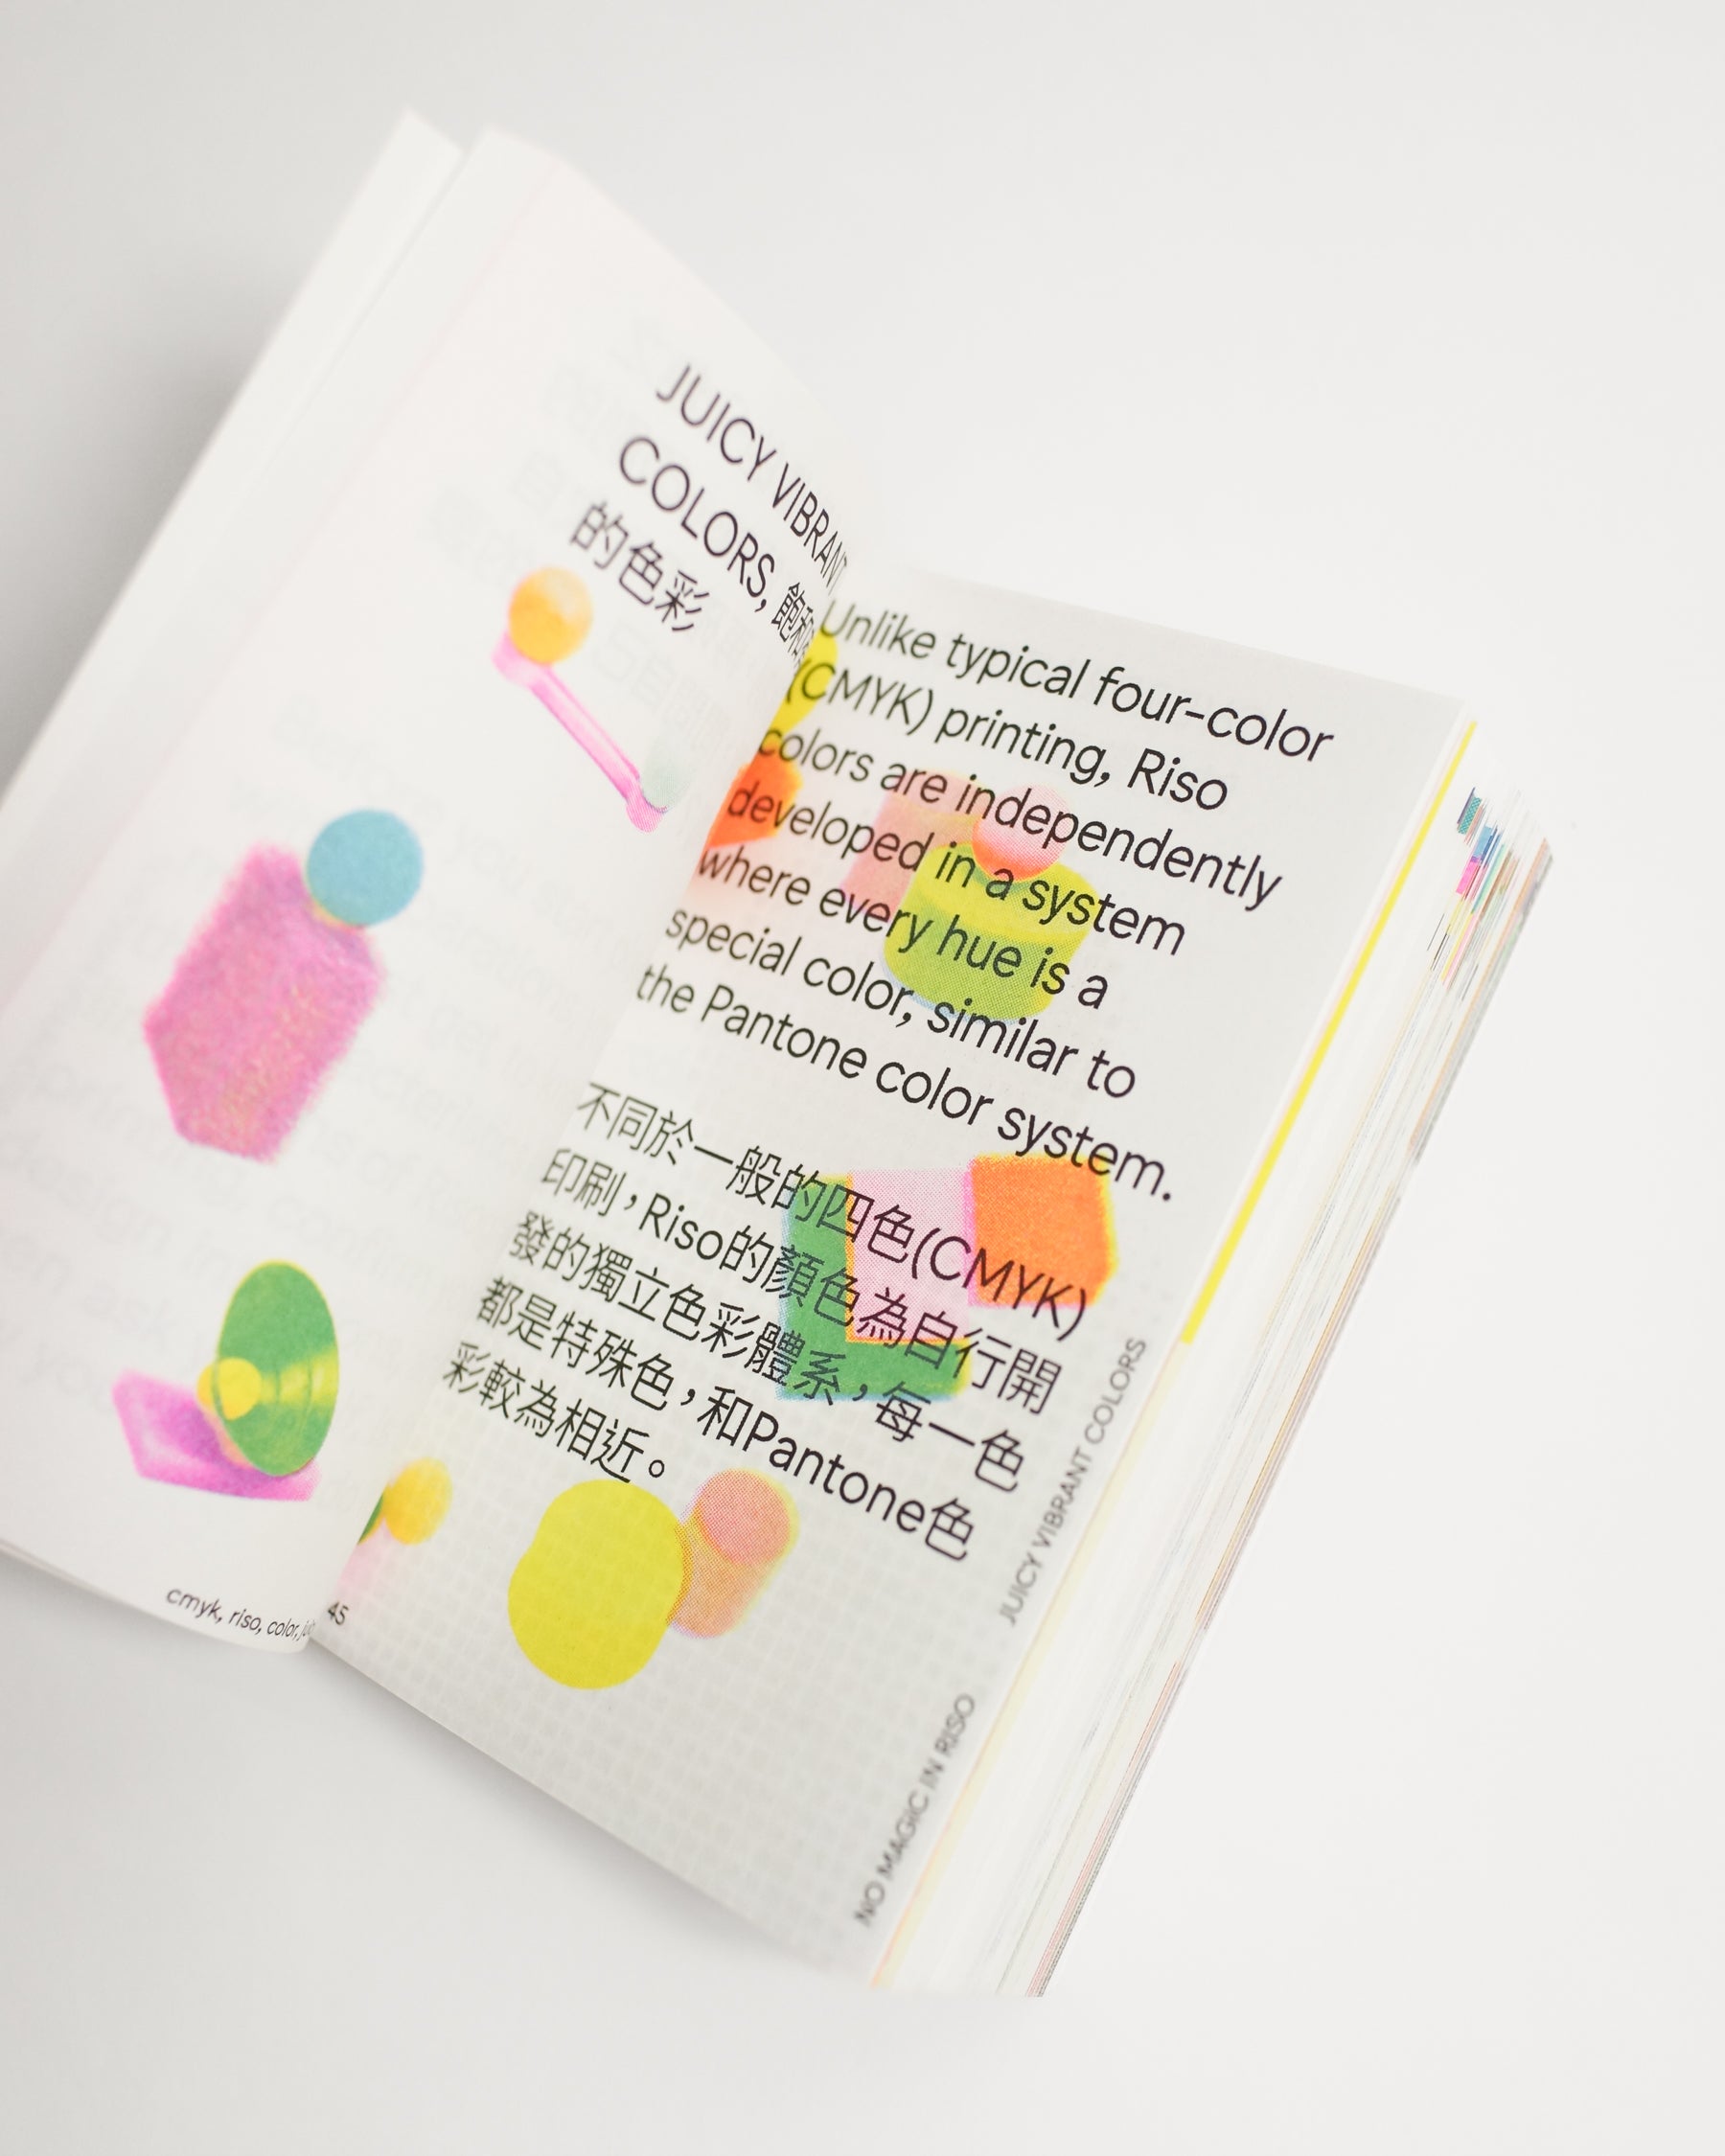 JUICY VIBRANT
COLORS, 飽和
的色彩
cmyk, riso, color,
Unlike typical four-color
(CMYK) printing, Riso
colors are independently
developed in a system
where every hue is a
special color, similar to
the Pantone color system.
不同於一般的四色(CMYK)
印刷，Riso的顏色為自行開
發的獨立色彩體系，每一色
都是特殊色，和Pantone色
彩較為相近。
45
JUICY VIBRANT COLORS
NO MAGIC IN RISO